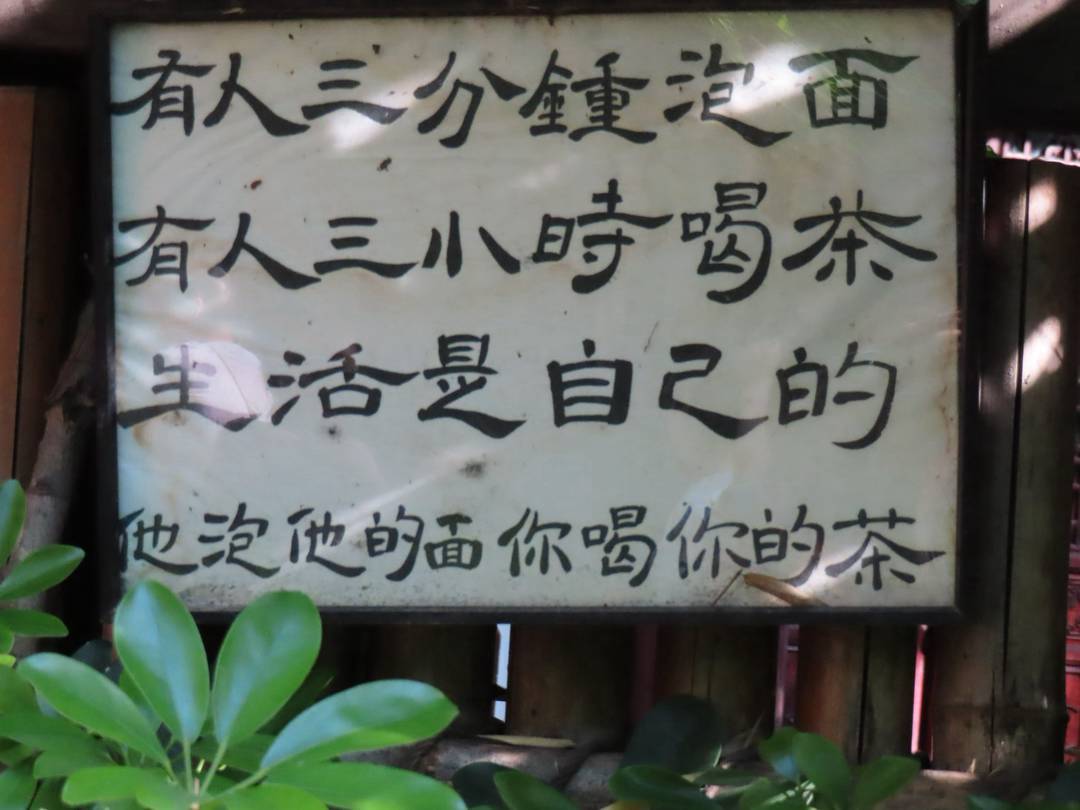 有人三分鍾泡面
有人三小時喝茶
生活是自己的
他泡他的面你喝你的茶